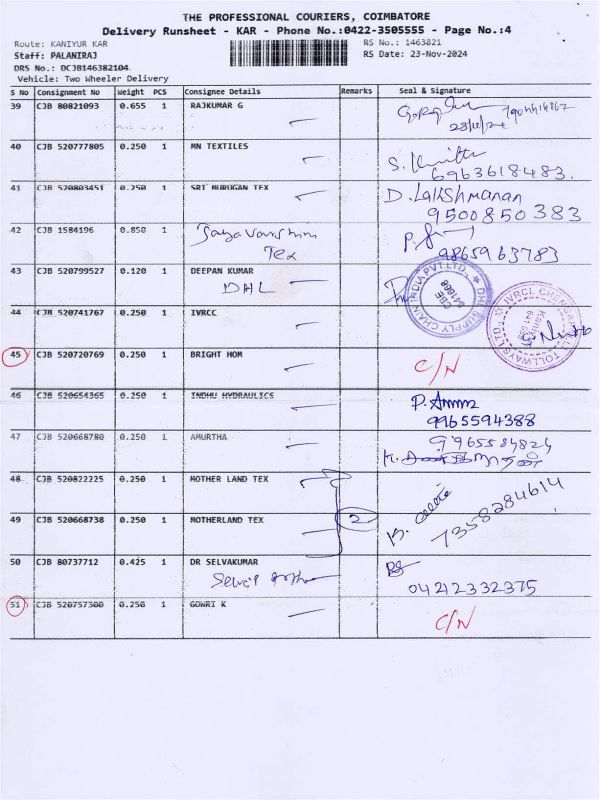 THE PROFESSIONAL COURIERS, COIMBATORE
Delivery Runsheet - KAR - Phone No.:0422-3505555 - Page No.:4
Route: KANIYUR KAR RS No.: 1463821
Staff: PALANIRAJ RS Date: 23-Nov-2024
DRS No.: DCJB146382104
Vehicle: Two Wheeler Delivery
S No Consignment No Weight PCS Consignee Details Remarks Seal & Signature
39 CJB 80821093 0.655 1 RAJKUMAR G
40 CJB 520777805 0.250 1 MN TEXTILES
6963618483.
41 CJB 520803451 0.250 1 SRI MURUGAN TEX D. Lakshmanan
9500850383
42 CJB 1584196 0.850 1
Tex 9865963783
43 CJB 520799527 0.120 1 DEEPAN KUMAR
DHL
DHL SUPPLY CHAIN INDIA PVT. LTD.
CBE
641668
44 CJB 520741767 0.250 1 IVRCC
IVRCL CHENGAPALLI TOLLWAYS LTD.
45 CJB 520720769 0.250 1 BRIGHT HOM C/N
46 CJB 520654365 0.250 1 INDHU HYDRAULICS
9965594388
47 CJB 520668780 0.250 1 AMURTHA
48 CJB 520822225 0.250 1 MOTHER LAND TEX
49 CJB 520668738 0.250 1 MOTHERLAND TEX 2 7358284614
50 CJB 80737712 0.425 1 DR SELVAKUMAR
04212332375
51 CJB 520757300 0.250 1 GOWRI K C/N